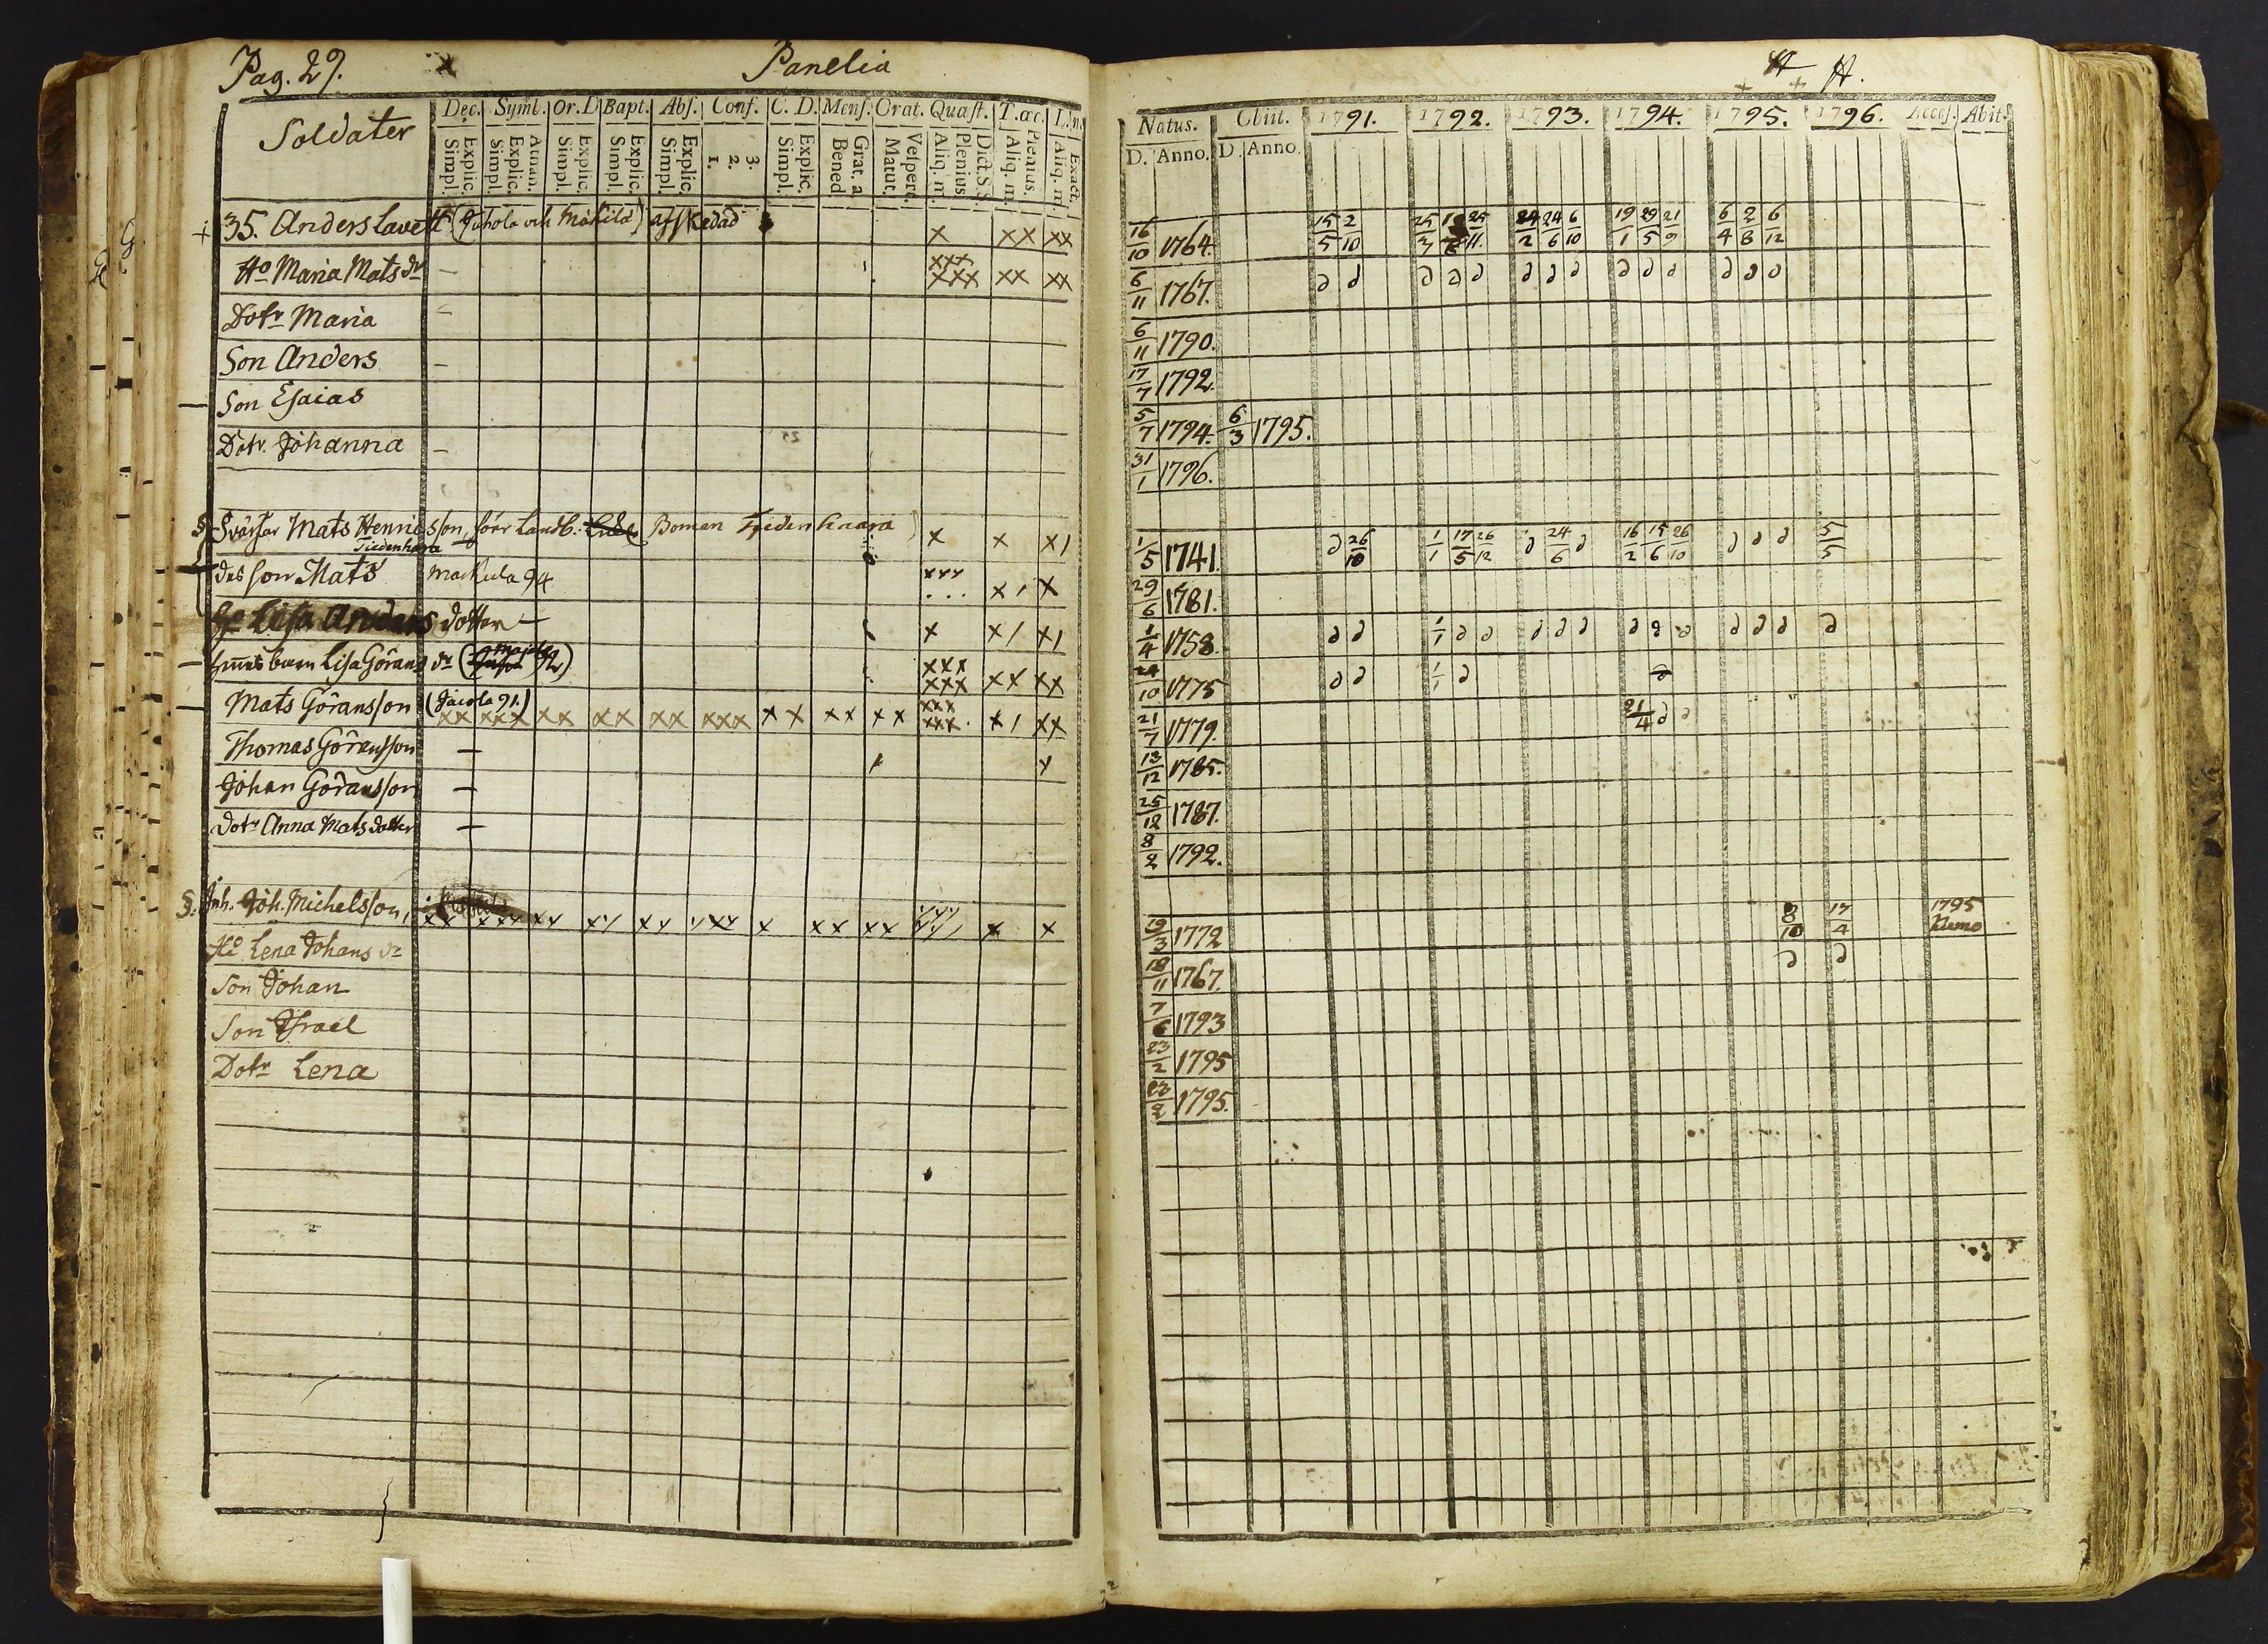 Pag. 29. Panelia
Soldater Dec. Symb. Or. D Bapt. Abs. Conf. C. D. Mens. Orat. Quæst. T. œc.
Explic. Simpl. Athan. Explic. Simpl. Explic. Simpl. Explic. Simpl. Explic. Simpl. 3. 2. 1. Explic. Simpl. Grat. a Bened. Vespert. Matut. Dict. S S Plenius Aliq. m. Plenius. Aliq. m. Exact. Aliq. m.
35. Anders Lavett (Juhola och Mäkilä) afskedad x xx xx
Ho Maria Mats dr — xxx xxx xx xx
Dotr Maria —
Son Anders —
Son Esaias
Dotr. Johanna —
Svärfar Mats Henricsson, förr Landb. Boman x x x/
des son Mats Mackula 94 xxx ... x/ x
Ho Lisa Anders dotter — x x/ x/
barn Lisa Görans dr xxx xxx xx xx
Mats Göransson (Jacola 91.)
xx xxx xx xx xx xxx xx xx xx xxx xxx. x/ xx
Thomas Göransson —
Johan Göransson —
dotr Anna Matsdotter —
§. Inh. Joh. Michelsson,
Ho Lena Johans dr
Son Johan
Son Israel
Dotr Lena
Natus. Obiit. 1791. 1792. 1793. 1794. 1795. 1796. Acces. Abit.
D. Anno. D. Anno.
16/10 1764. 15/5 2/10 24/2 24/6 6/10 19/1 29/5 21/9 6/4 2/8 6/12
6/11 1767. d d d d d d d d d d d d d d
6/11 1790.
17/7 1792.
5/7 1794. 6/3 1795.
31/1 1796.
1/5 1741. d 26/10 1/1 17/5 26/12 d 24/6 d 16/2 15/6 26/10 d d d 5/5
29/6 1781.
1/4 1758. d d 1/1 d d d d d d d d d d d d
24/10 1775 d d 1/1 d
21/7 1779. 21/4 d d
13/12 1785.
25/12 1787.
8/2 1792.
19/3 1772 8/10 17/4 1795
18/11 1767. d d
7/6 1793
23/2 1795
1795.